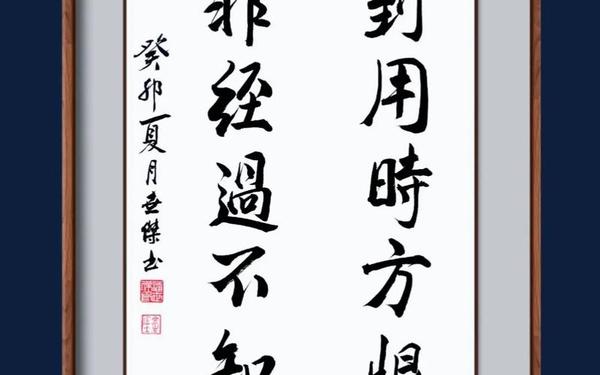 到用時方恨
非經過不知
癸卯夏月世傑书